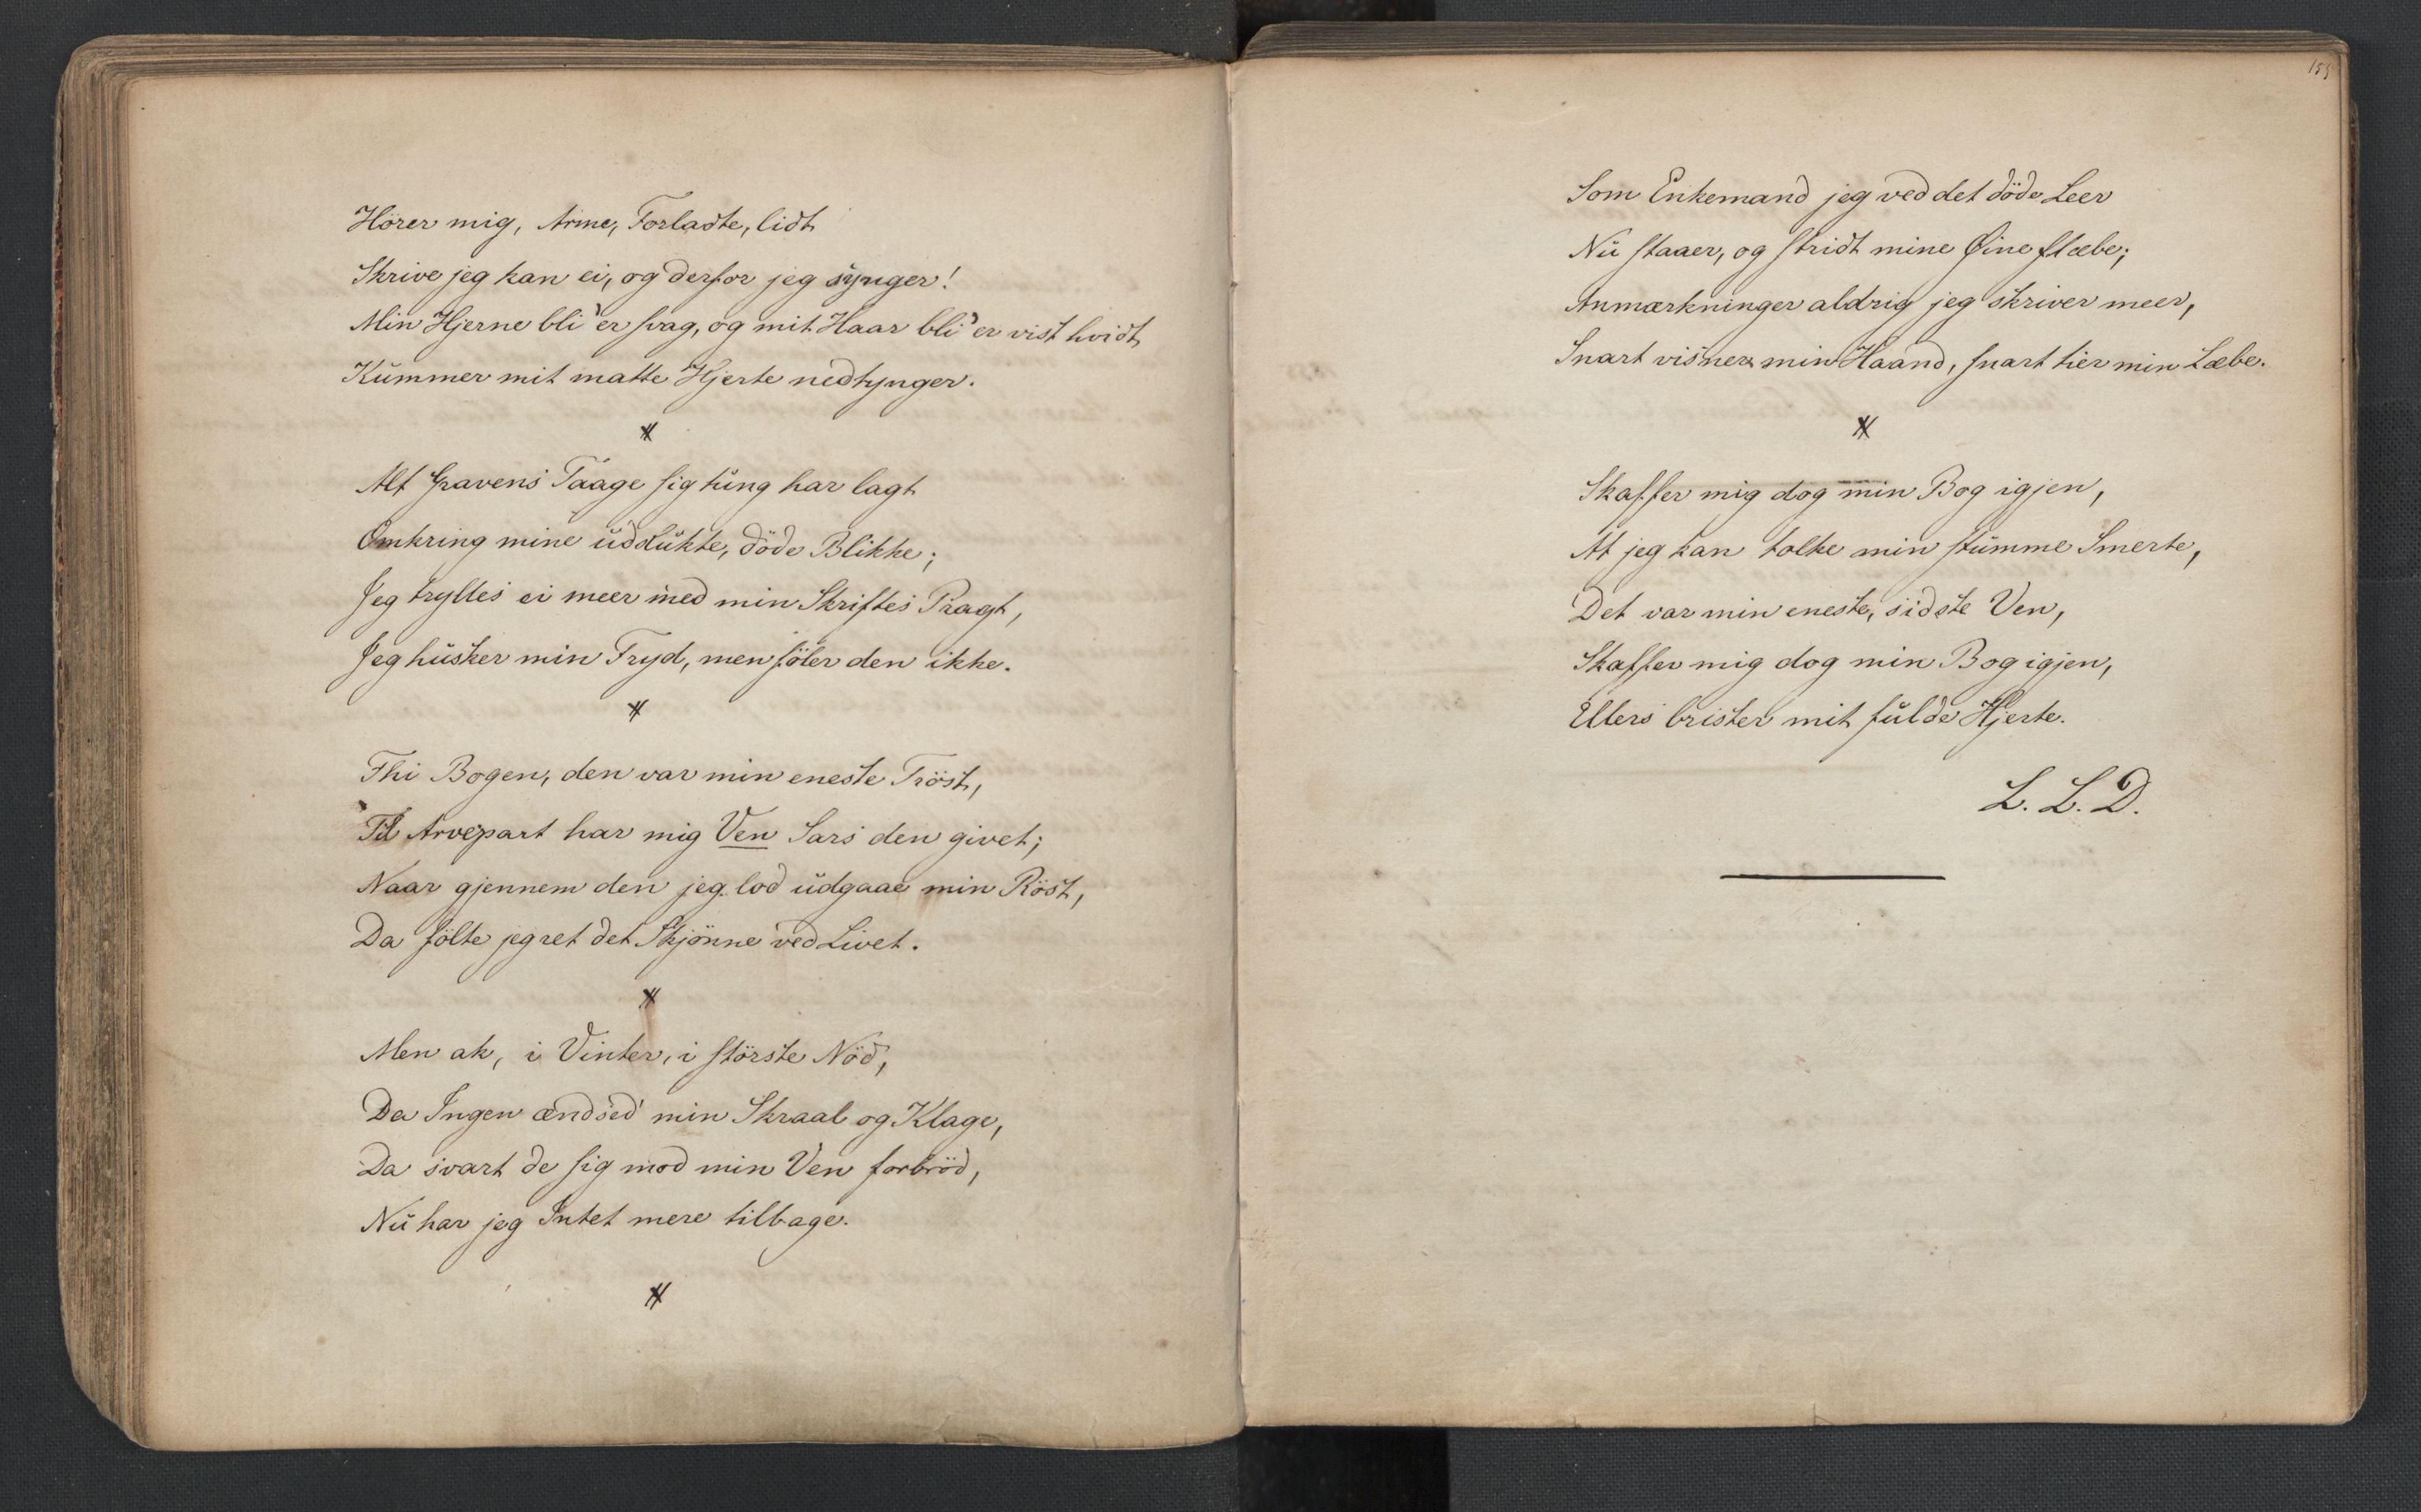 Hörer mig, Arme, Forladte, lidt
Skrive jeg kan ei, og derfor jeg synger!
Min Hjerne bli'er svag, og mit Haar bli'er vist hvidt,
Kummer mit matte Hjerte nedtynger.
Alt Gravens Taage sig tung har lagt
Omkring mine udslukte, döde Blikke;
Jeg trylles ei meer med min Skriftes Pragt,
Jeg husker min Fryd, men föler den ikke.
Thi Bogen, den var min eneste Tröst,
Til Arvepart har mig Ven Sars den givet;
Naar gjennem den jeg lod udgaae min Röst,
Da fölte jeg ret det Skjönne ved Livet.
Men ak, i Vinter, i störste Nöd,
Da Ingen ændsed' min Skraal og Klage,
Da svart de sig mod min Ven forbröd,
Nu har jeg Intet mere tilbage.
155
Som Enkemand jeg ved det döde Leer
Nu staaer, og stridt mine Øine flæbe;
Anmærkninger aldrig jeg skriver meer,
Snart visner min Haand, snart tier min Læbe.
Skaffer mig dog min Bog igjen,
At jeg kan tolke min stumme Smerte,
Det var min eneste, sidste Ven,
Skaffer mig dog min Bog igjen,
Ellers brister mit fulde Hjerte.
L. L. D.